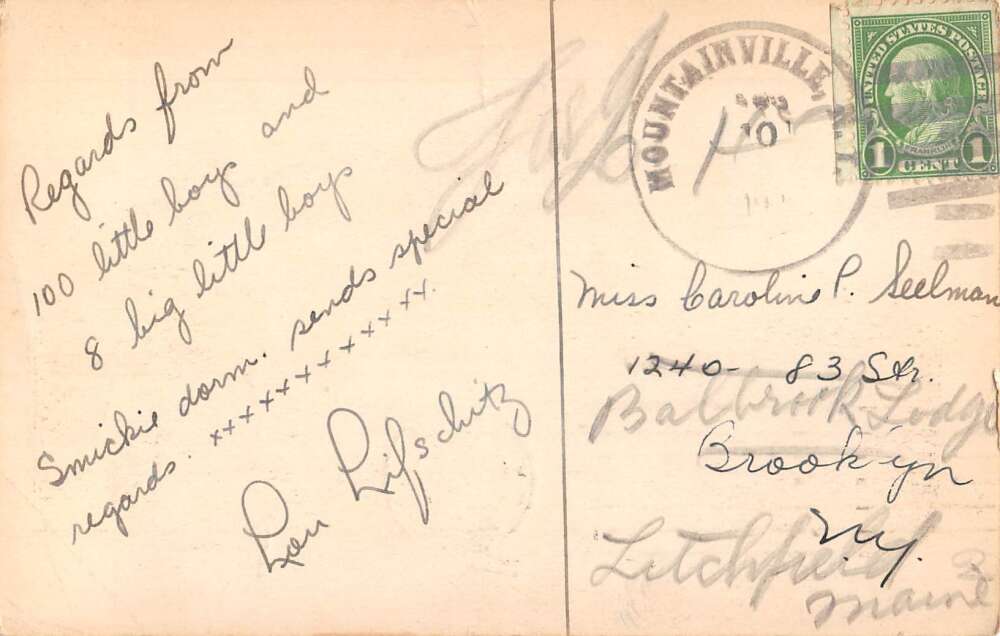 Regards from
100 little boys and
8 big little boys
Smickie dorm. sends special
regards. xx+xxxxxxxxxx.
Lou Lifschitz
MOUNTAINVILLE,
10
UNITED STATES POSTAGE
FRANKLIN
1 CENT 1
Miss Caroline P. Seelman
1240- 83 Str.
Balbrook Lodge
Brooklyn
N.Y.
Litchfield
Maine